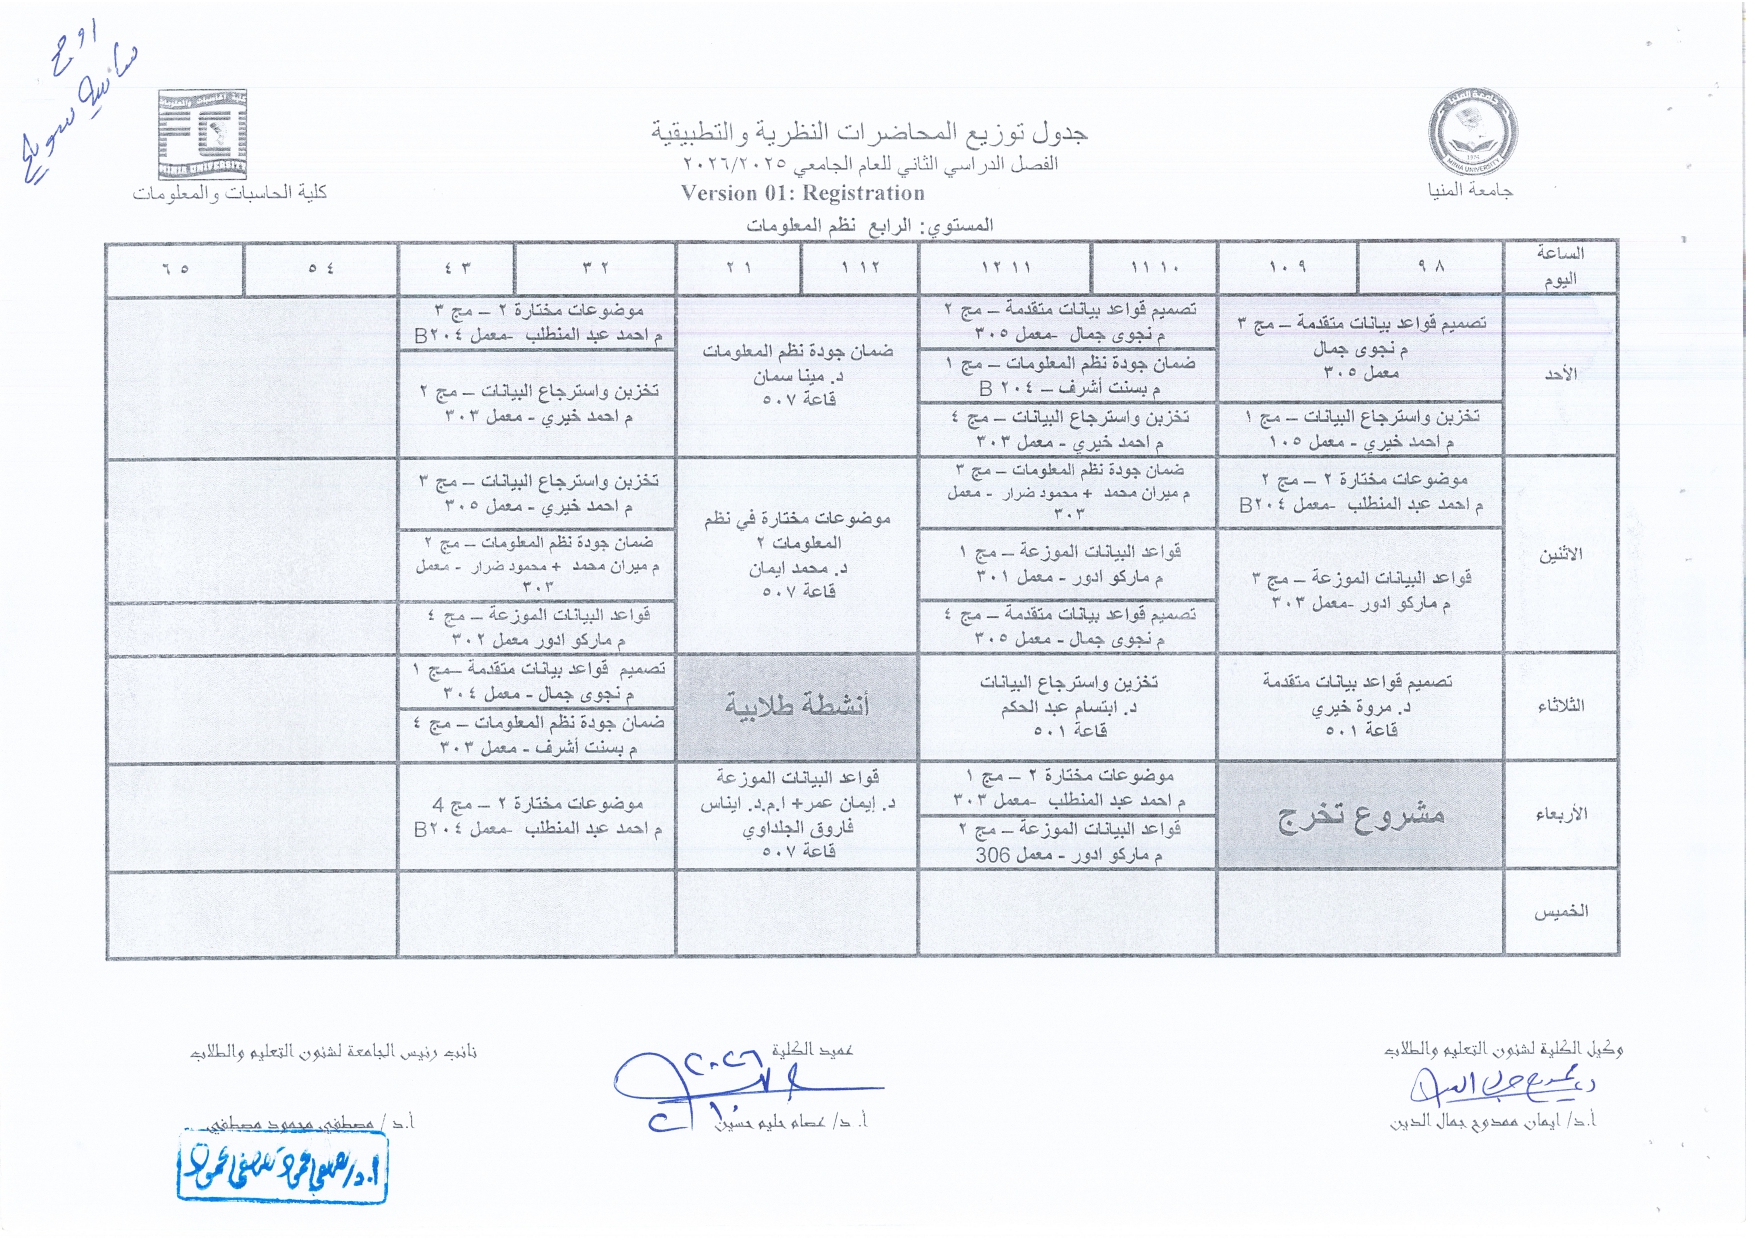 جدول توزيع المحاضرات النظرية والتطبيقية
الفصل الدراسي الثاني للعام الجامعي ٢٠٢٦/٢٠٢٥
Version 01: Registration
المستوي: الرابع نظم المعلومات
جامعة المنيا
MINIA UNIVERSITY
كلية الحاسبات والمعلومات
MINIA UNIVERSITY
الساعة
اليوم
٨ ٩
٩ ١٠
١٠ ١١
١١ ١٢
١٢ ١
١ ٢
٢ ٣
٣ ٤
٤ ٥
٥ ٦
الأحد
تصميم قواعد بيانات متقدمة – مج ٣
م نجوى جمال
معمل ٣٠٥
تخزين واسترجاع البيانات – مج ١
م احمد خيري - معمل ١٠٥
تصميم قواعد بيانات متقدمة – مج ٢
م نجوى جمال -معمل ٣٠٥
ضمان جودة نظم المعلومات – مج ١
م بسنت أشرف – B ٢٠٤
تخزين واسترجاع البيانات – مج ٤
م احمد خيري - معمل ٣٠٣
ضمان جودة نظم المعلومات
د. مينا سمان
قاعة ٥٠٧
موضوعات مختارة ٢ – مج ٣
م احمد عبد المنطلب -معمل B٢٠٤
تخزين واسترجاع البيانات – مج ٢
م احمد خيري - معمل ٣٠٣
الاثنين
موضوعات مختارة ٢ – مج ٢
م احمد عبد المنطلب -معمل B٢٠٤
قواعد البيانات الموزعة – مج ٣
م ماركو ادور -معمل ٣٠٣
ضمان جودة نظم المعلومات – مج ٣
م ميران محمد + محمود ضرار - معمل
٣٠٣
قواعد البيانات الموزعة – مج ١
م ماركو ادور - معمل ٣٠١
تصميم قواعد بيانات متقدمة – مج ٤
م نجوى جمال - معمل ٣٠٥
موضوعات مختارة في نظم
المعلومات ٢
د. محمد ايمان
قاعة ٥٠٧
تخزين واسترجاع البيانات – مج ٣
م احمد خيري - معمل ٣٠٥
ضمان جودة نظم المعلومات – مج ٢
م ميران محمد + محمود ضرار - معمل
٣٠٣
قواعد البيانات الموزعة – مج ٤
م ماركو ادور معمل ٣٠٢
الثلاثاء
تصميم قواعد بيانات متقدمة
د. مروة خيري
قاعة ٥٠١
تخزين واسترجاع البيانات
د. ابتسام عبد الحكم
قاعة ٥٠١
أنشطة طلابية
تصميم قواعد بيانات متقدمة –مج ١
م نجوى جمال - معمل ٣٠٤
ضمان جودة نظم المعلومات – مج ٤
م بسنت أشرف - معمل ٣٠٣
الأربعاء
مشروع تخرج
موضوعات مختارة ٢ – مج ١
م احمد عبد المنطلب -معمل ٣٠٣
قواعد البيانات الموزعة – مج ٢
م ماركو ادور - معمل 306
قواعد البيانات الموزعة
د. إيمان عمر+ ا.م.د. ايناس
فاروق الجلداوي
قاعة ٥٠٧
موضوعات مختارة ٢ – مج 4
م احمد عبد المنطلب -معمل B٢٠٤
الخميس
وكيل الكلية لشئون التعليم والطلاب
أ.د/ ايمان ممدوح جمال الدين
عميد الكلية
٢٠٢٦
أ. د/ عصام حليم حسين
نائب رئيس الجامعة لشئون التعليم والطلاب
أ.د / مصطفي محمود مصطفي
ا.د/ مصطفى محمود مصطفى محمود